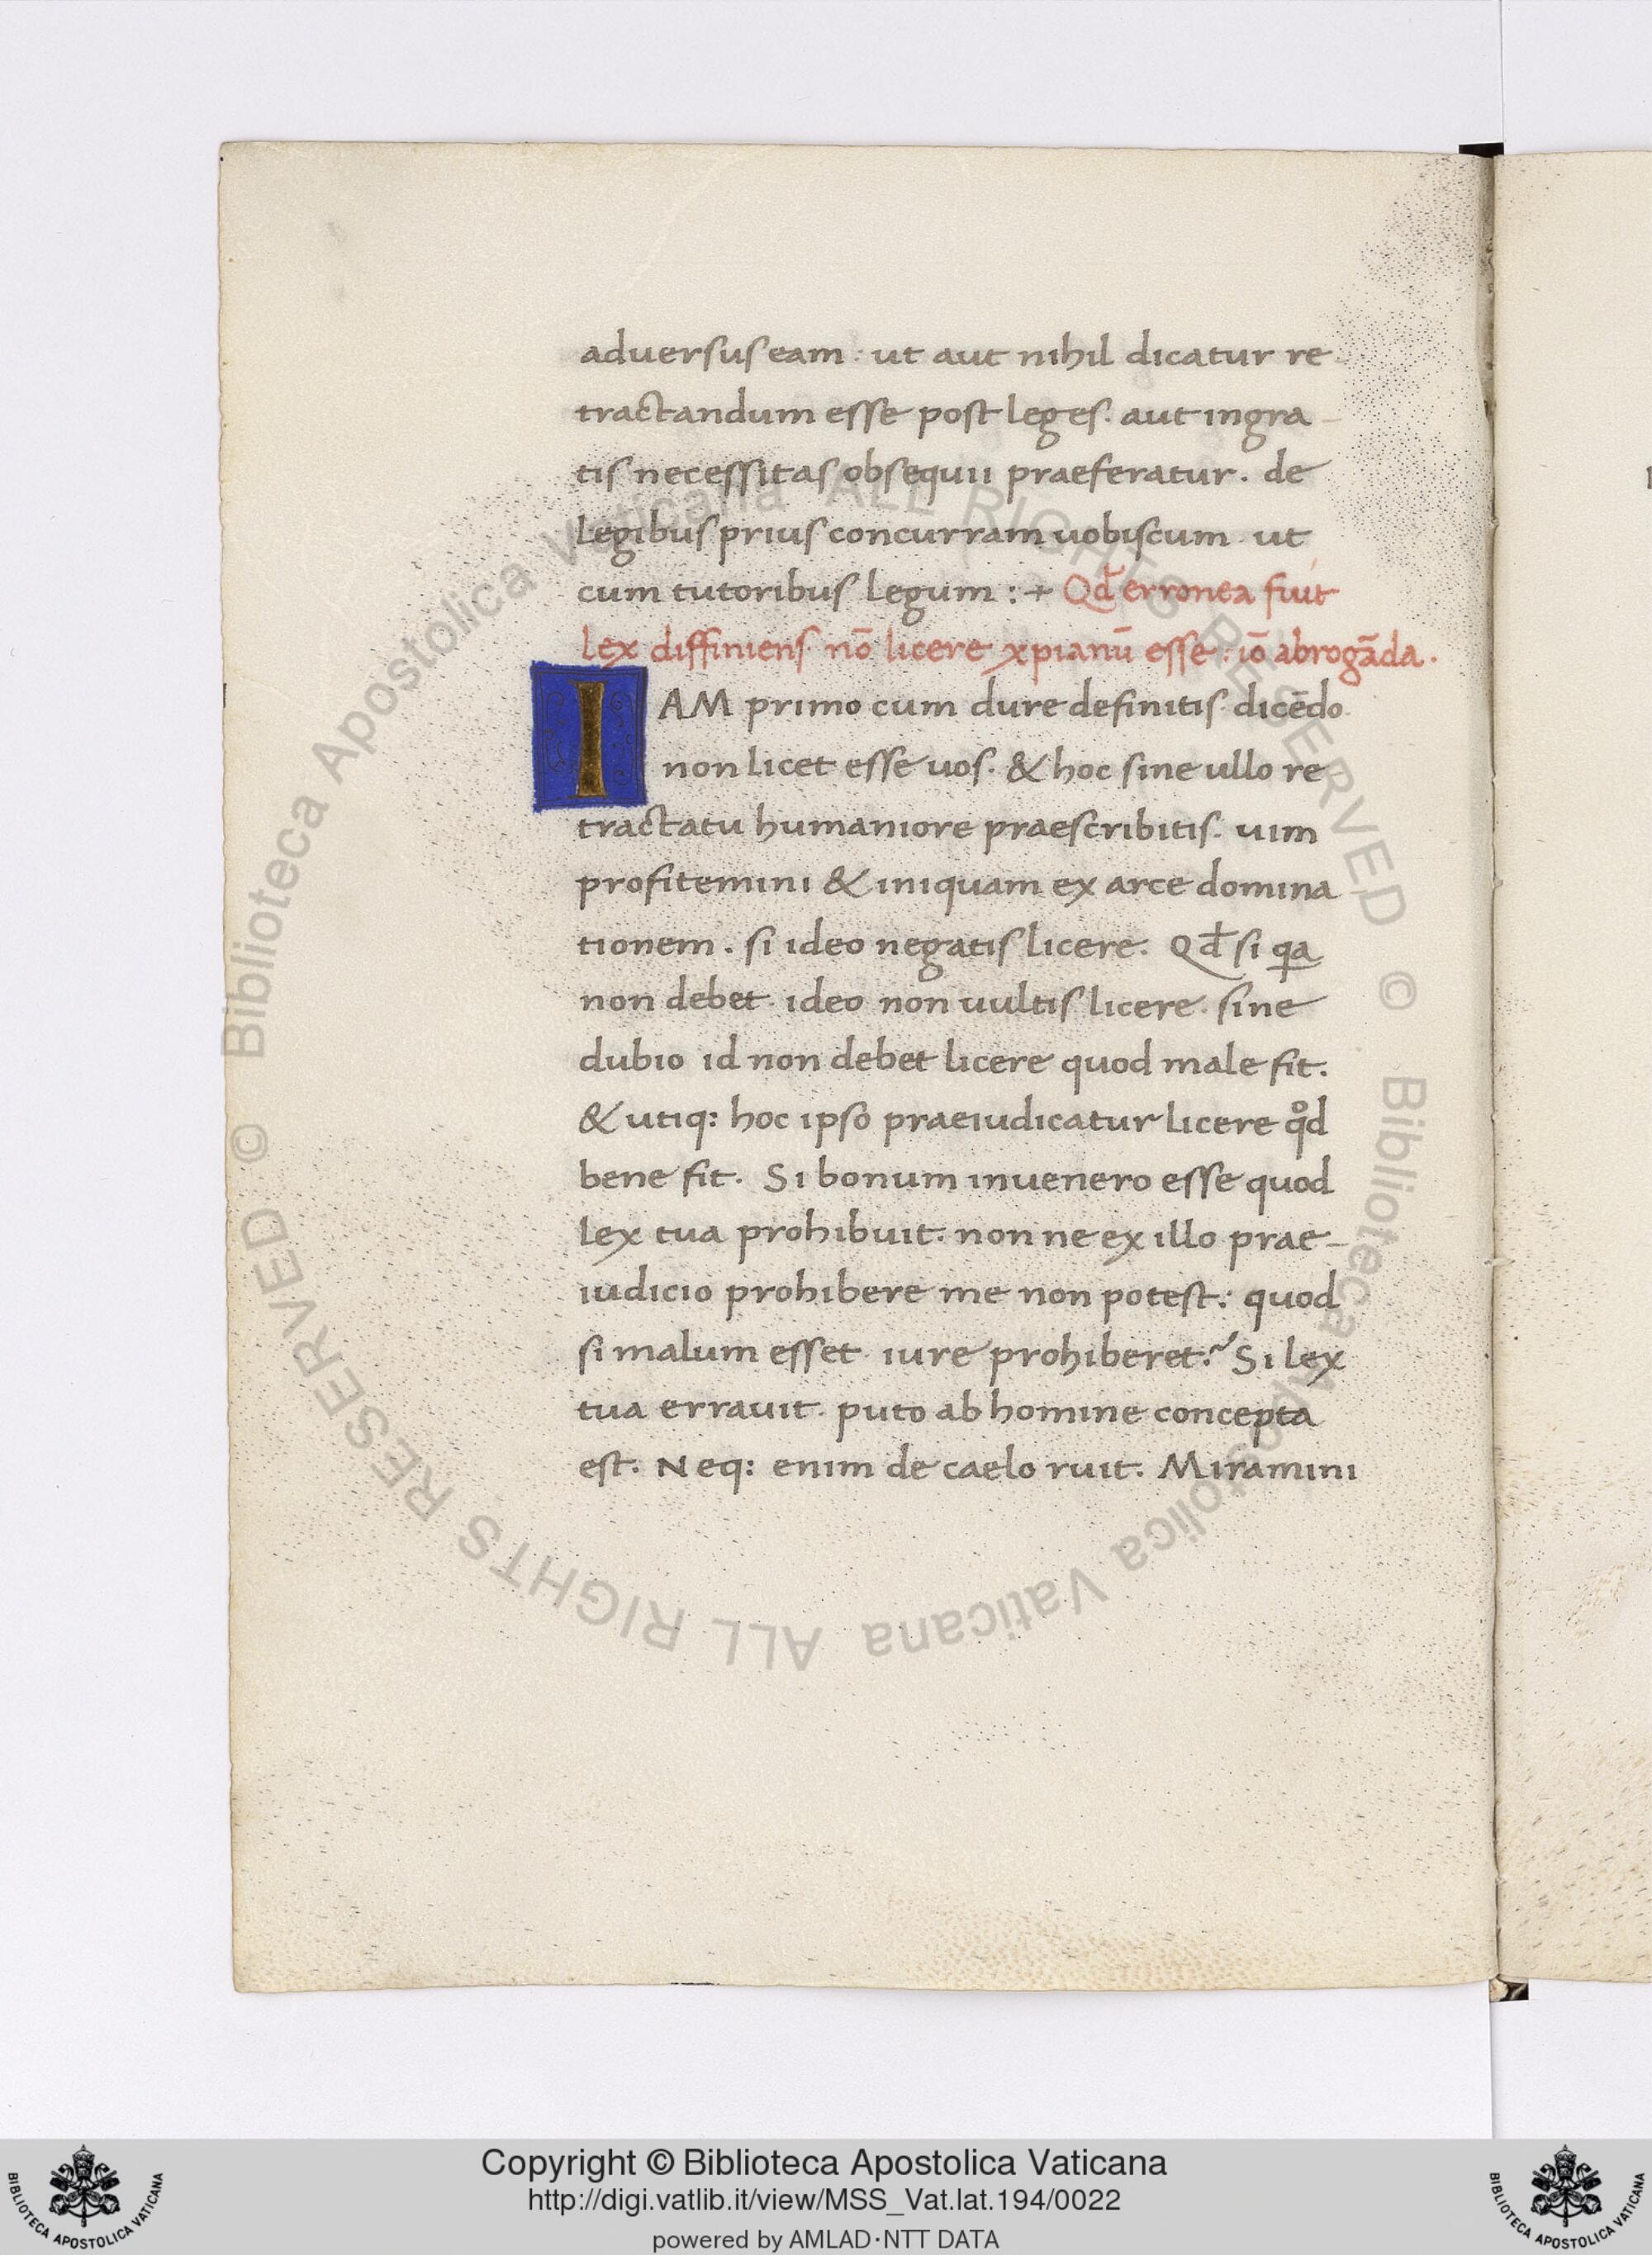 adversus eam : ut aut nihil dicatur re
tractandum esse post leges. aut ingra-
tis necessitas obsequii praeferatur. de
legibus prius concurram uobiscum . ut
cum tutoribus legum :+ Qd̄ erronea fuit
lex diffiniens nō licere xpianū esse : iō abrogāda.
IAM primo cum dure definitis. dicēdo
non licet esse uos. & hoc sine ullo re
tractatu humaniore praescribitis. uim
profitemini & iniquam ex arce domina
tionem. si ideo negatis licere. Qd̄ si qa
non debet. ideo non uultis licere. sine
dubio id non debet licere quod male fit.
& utiq: hoc ipso praeiudicatur licere qͦd
bene fit. Si bonum inuenero esse quod
lex tua prohibuit: non ne ex illo prae-
iudicio prohibere me non potest: quod
si malum esset. iure prohiberet? Si lex
tua errauit. puto ab homine concepta
est. Neq: enim de caelo ruit. Miramini
© Biblioteca Apostolica Vaticana ALL RIGHTS RESERVED
© Biblioteca Apostolica Vaticana ALL RIGHTS RESERVED
Copyright © Biblioteca Apostolica Vaticana
http://digi.vatlib.it/view/MSS_Vat.lat.194/0022
powered by AMLAD·NTT DATA
BIBLIOTECA APOSTOLICA VATICANA
BIBLIOTECA APOSTOLICA VATICANA